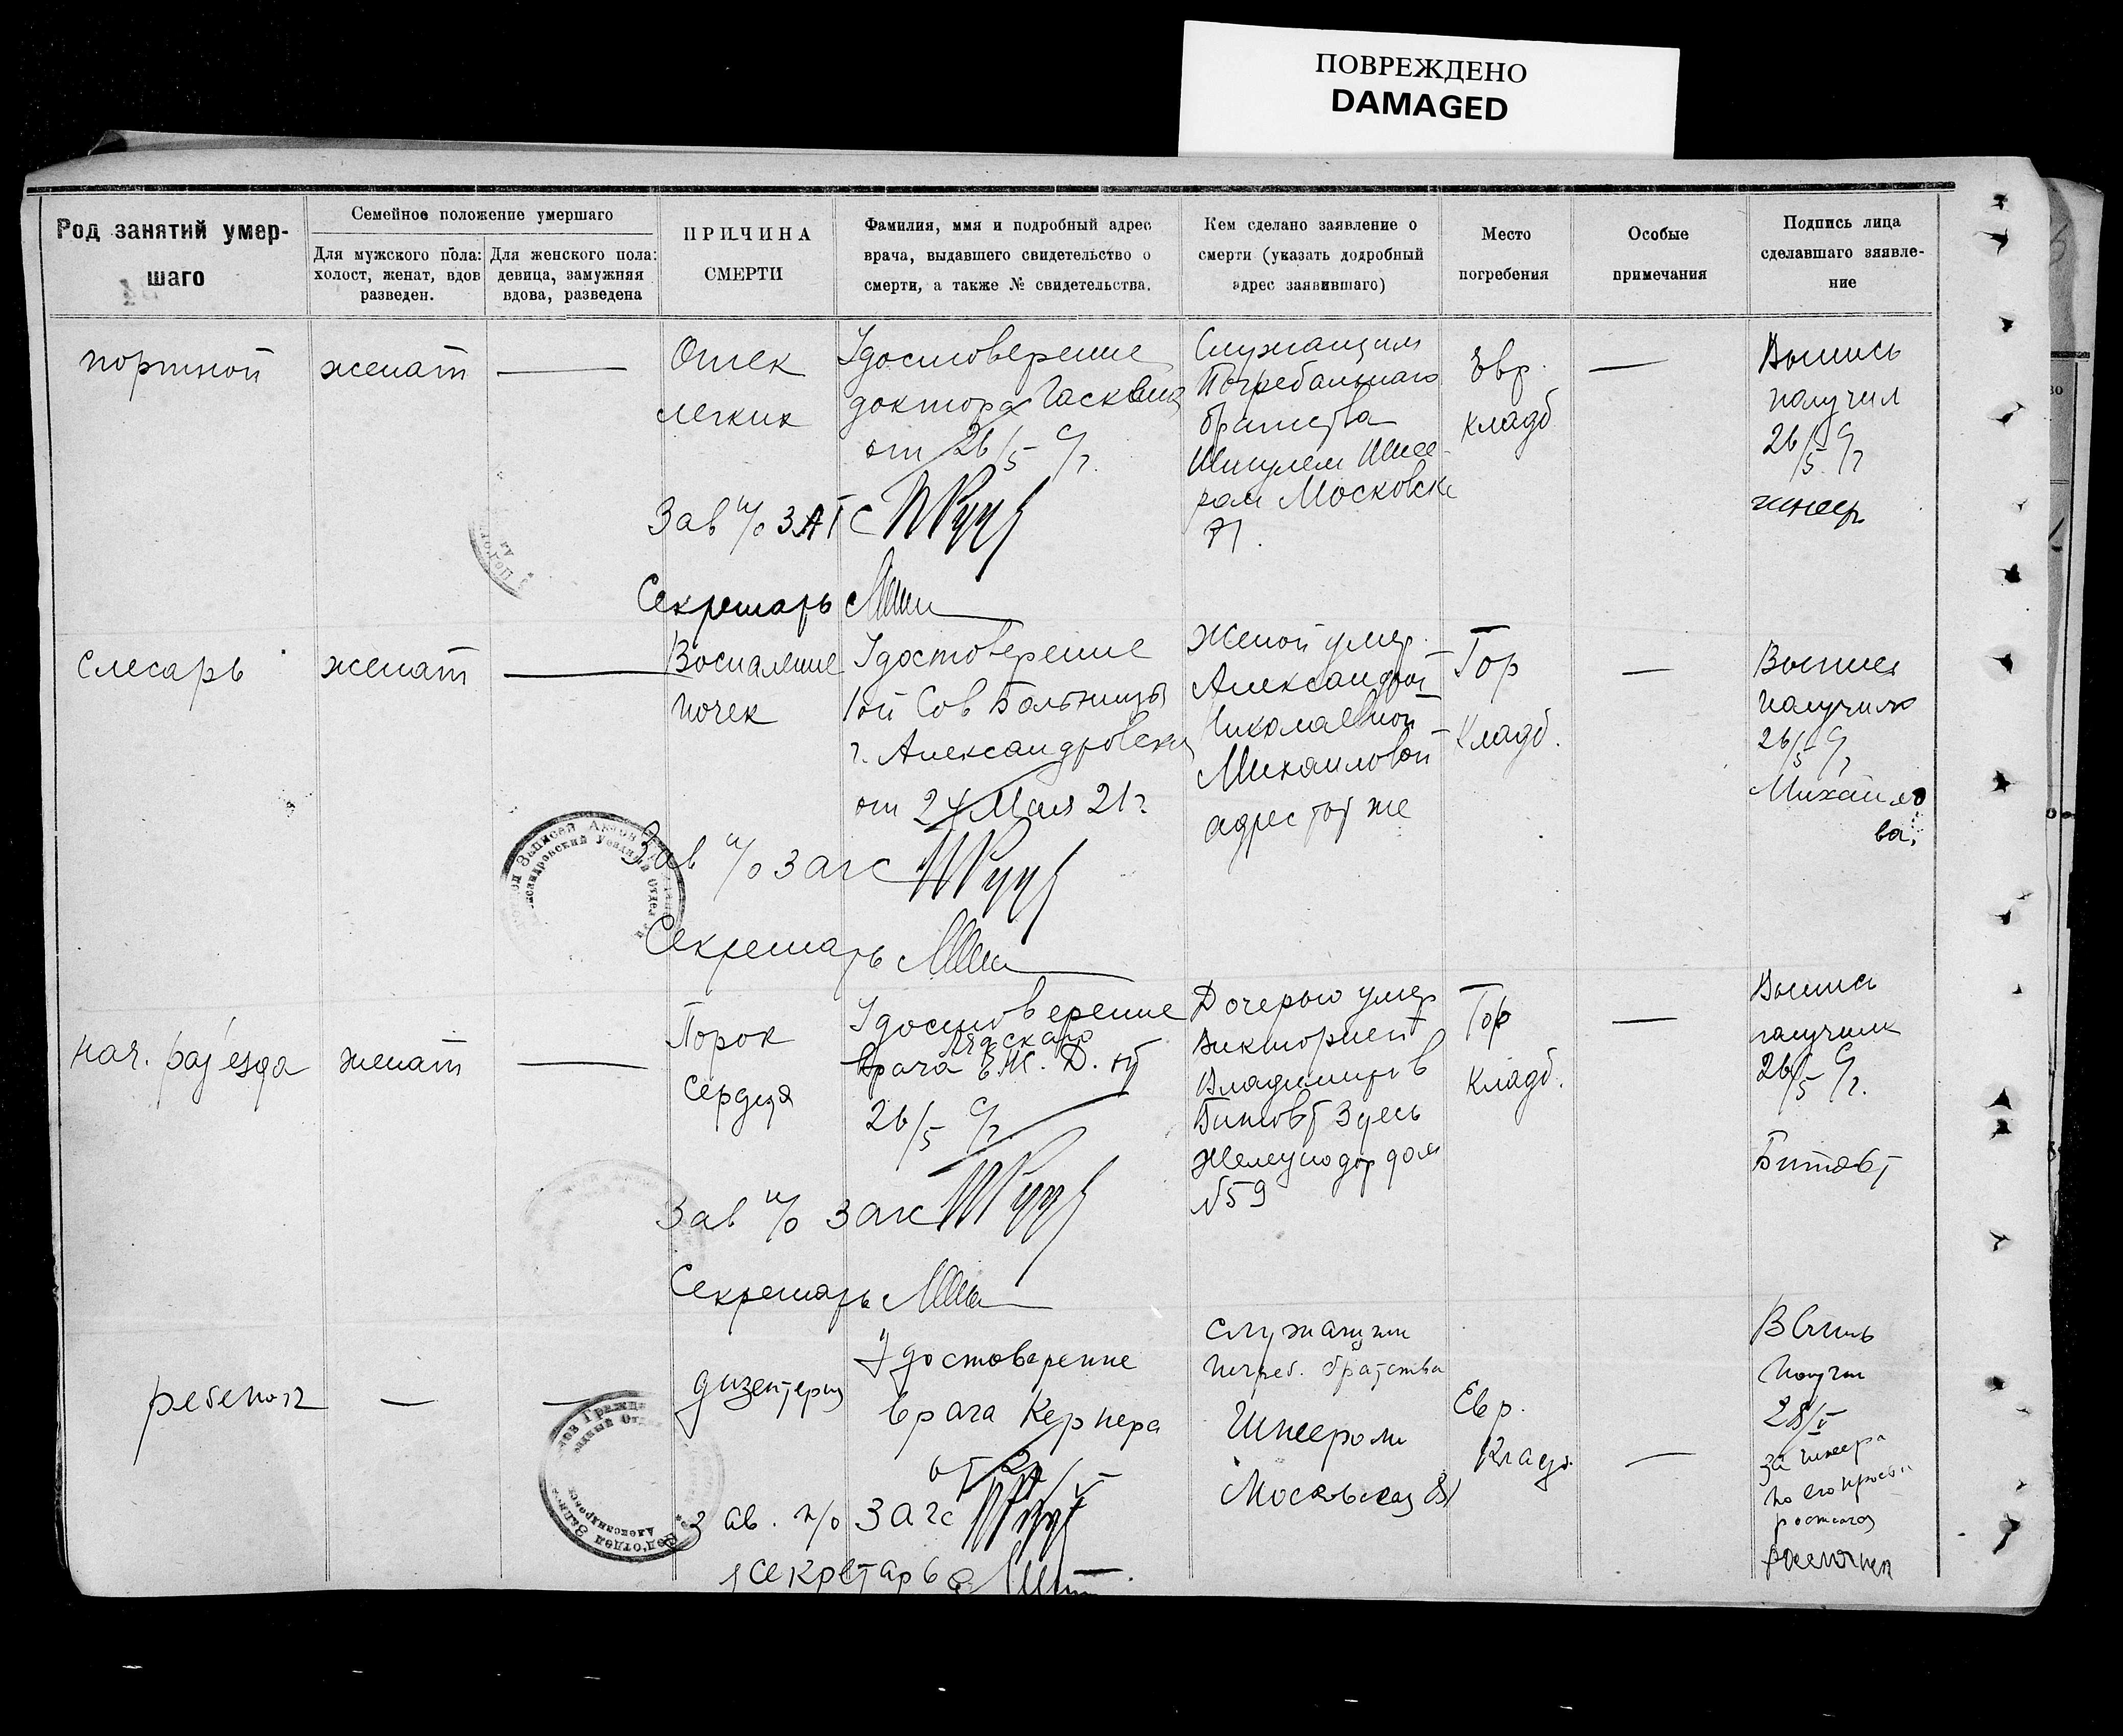 ПОВРЕЖДЕНО
DAMAGED
Род занятий умер-
шаго
Семейное положение умершаго
Для мужского пола:
холост, женат, вдов
разведен.
Для женского пола:
девица, замужняя
вдова, разведена
ПРИЧИНА
СМЕРТИ
Фамилия, ммя и подробный адрес
врача, выдавшего свидетельство о
смерти, а также № свидетельства.
Кем сделано заявление о
смерти (указать додробный
адрес заявившаго)
Место
погребения
Особые
примечания
Подпись лица
сделавшаго зяявле-
ние
портной
женат
—
Отек
легких
Удостоверение
доктора
от 26/5 с/г.
Служащим
Погребальнаго
братства
Шнее-
ром Московск
71.
Евр.
кладб
—
Выпись
получил
26/5 с/г
шнеер
Зав п/о ЗАГС
Секретарь
слесарь
женат
—
Воспаление
почек
Удостоверение
1ой Сов Больницы
г. Александровска
от 24 Мая 21 г
Женой умер.
Александрой
Николаевной
Михайловой
адрес тот же
Гор
Кладб.
—
Выпись
получила
26/5 с/г
Михайло
ва
Зав п/о загс
Секретарь
нач. раз'езда
женат
—
Порок
сердца
Удостоверение
врача Е.Ж.Д. от
26/5 с/г
Дочерью умер
Викторией
Владимиров
Битовт Здесь
Железнодор дом
№59
Гор
кладб.
—
Выпись
получила
26/5 с/г.
Битовт
Зав п/о загс
Секретарь
ребенок
—
—
дизентерия
Удостоверение
врача Кернера
служащим
погреб. братства
Шнеером
Московская 81
Евр.
Кладб.
—
получил
28/V
за шнеера
по его просьбе
Зав. п/о загс
секретарь